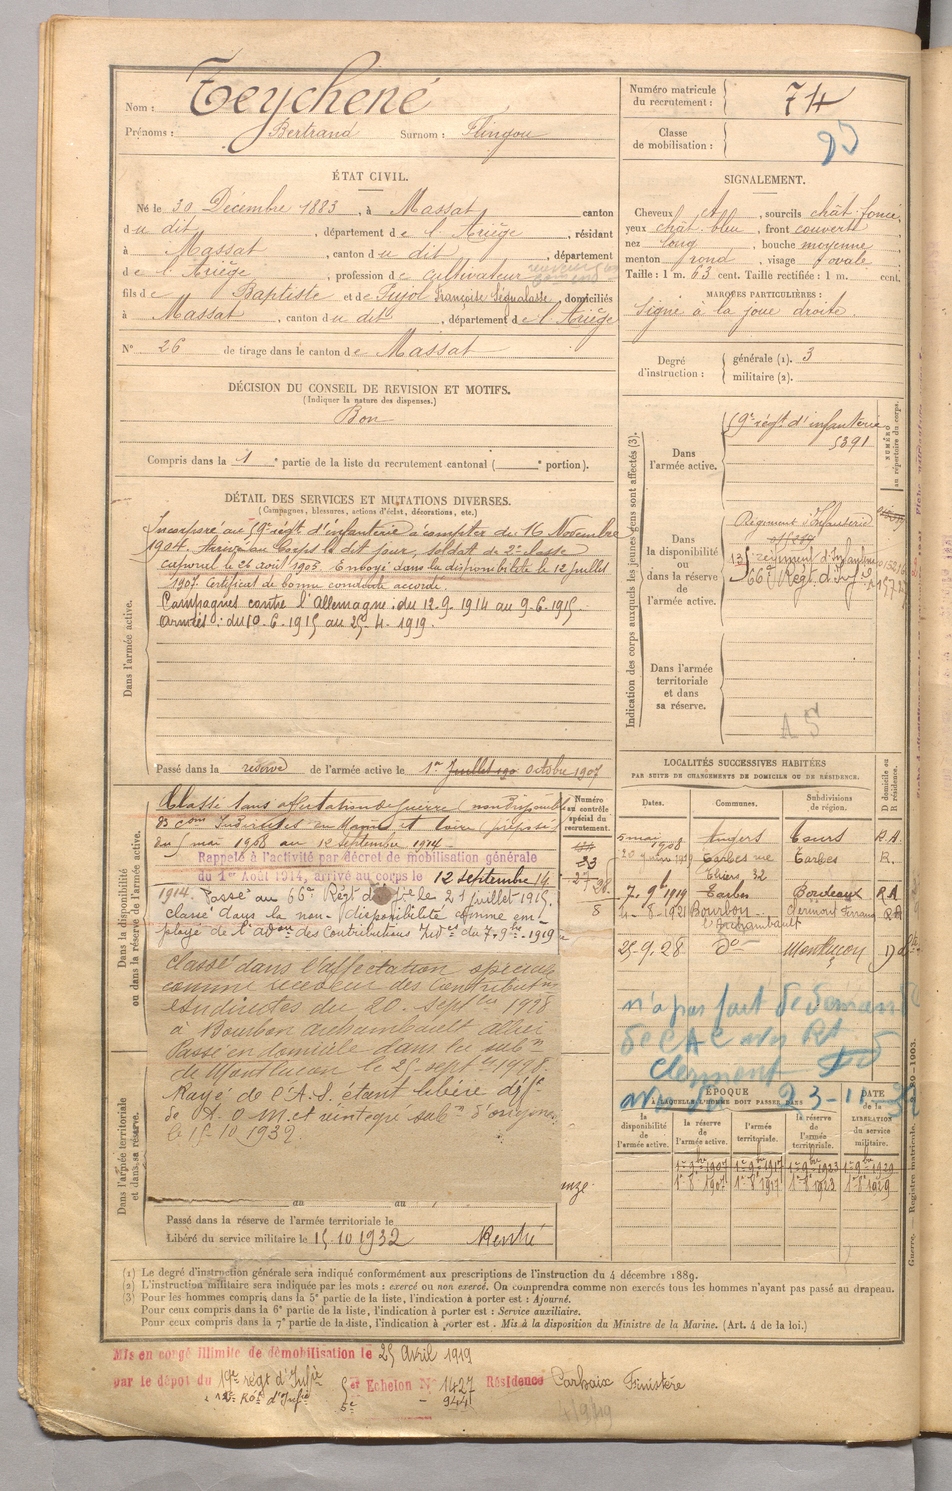 Nom : Teychené
Prénoms : Bertrand Surnom : Plingou
ÉTAT CIVIL.
Né le 30 Décembre 1883, à Massat canton
du dit, département de l'Ariège, résidant
à Massat, canton du dit, département
de l'Ariège, profession de cultivateur
fils de Baptiste et de Pujol Françoise Ségualasse, domiciliés
à Massat, canton du dit, département de l'Ariège
N° 26 de tirage dans le canton de Massat
DÉCISION DU CONSEIL DE REVISION ET MOTIFS.
(Indiquer la nature des dispenses.)
Bon
Compris dans la 1e partie de la liste du recrutement cantonal ( e portion).
DÉTAIL DES SERVICES ET MUTATIONS DIVERSES.
(Campagnes, blessures, actions d'éclat, décorations, etc.)
Dans l'armée active.
Incorporé au 59e régt d'infanterie à compter du 16 Novembre
1904. Arrivé au Corps le dit jour, soldat de 2e classe
Caporal le 26 août 1905. Envoyé dans la disponibilité le 12 juillet
1907. Certificat de bonne conduite accordé.
Campagnes contre l'Allemagne : du 12.9.1914 au 9.6.1915
Armées : du 10.6.1915 au 25.4.1919.
Passé dans la réserve de l'armée active le 1er Juillet 190 octobre 1907
Dans la disponibilité
ou dans la réserve de l'armée active.
Classé sans affectation de guerre (non disponible
des Cons Indirectes en Maine et Loire (préposé)
du 5 mai 1908 au 12 septembre 1914
Rappelé à l'activité par décret de mobilisation générale
du 1er Août 1914, arrivé au corps le 12 septembre 14
1914. Passé au 66e Régt d'Ife le 21 juillet 1915.
classé dans la non-disponibilité comme em-
ployé de l'adon des Contributions Indtes du 7.9bre.1919
Classé dans l'affectation spéciale
comme receveur des Contributns
Indirectes du 20 septbre 1928
à Bourbon Archambault Allier
Passé en domicile dans la subn
de Montluçon le 25 septe 1928.
Rayé de l'A.S. étant libéré déff
de S. O. M et réintégré subn d'origine
le 15-10 1932
Dans l'armée territoriale
et dans sa réserve.
au au
Passé dans la réserve de l'armée territoriale le
Libéré du service militaire le 15.10 1932
Numéro matricule
du recrutement : 74
Classe
de mobilisation :
SIGNALEMENT.
Cheveux ch, sourcils chât. foncé,
yeux chât. bleu, front couvert
nez long, bouche moyenne
menton rond, visage ovale
Taille : 1 m. 63 cent. Taille rectifiée : 1 m. cent.
MARQUES PARTICULIÈRES :
Signe à la joue droite.
Degré
d'instruction :
générale (1). 3
militaire (2).
Indication des corps auxquels les jeunes gens sont affectés (3).
NUMÉRO
au répertoire du corps.
Dans
l'armée active.
59e régt d'infanterie
5391
Dans
la disponibilité
ou
dans la réserve
de
l'armée active.
Régiment d'Infanterie
135e régiment d'Infanterie
66e Régt d'Inf
Dans l'armée
territoriale
et dans
sa réserve.
A S
LOCALITÉS SUCCESSIVES HABITÉES
PAR SUITE DE CHANGEMENTS DE DOMICILE OU DE RÉSIDENCE.
Numéro
au contrôle
spécial du
recrutement.
23
27
8
Dates. Communes. Subdivisions
de région.
D domicile ou
R résidence.
5 mai 1908 Angers Tours R.A.
Tarbes rue Tarbes R.
Thiers, 32
7.9b 1919 Tarbes Bordeaux RA
4-8-1921 Bourbon l'Archambault Clermont Ferrand RA
25-9.28 do Montluçon D
n'a pas fait de deman
de
Clermont
23-11-32
ÉPOQUE
À LAQUELLE L'HOMME DOIT PASSER DANS
la
disponibilité
de
l'armée active.
la réserve
de
l'armée active.
l'armée
territoriale.
la réserve
de
l'armée
territoriale.
DATE
de la
LIBÉRATION
du service
militaire.
1er 9bre 1907 1er 9bre 1917 1er 9bre 1923 1er 9bre 1929
1er 8b 1907 1er 8b 1917 1er 8b 1923 1er 8b 1929
onze
Guerre. Registre matricule. 80-1903.
(1) Le degré d'instruction générale sera indiqué conformément aux prescriptions de l'instruction du 4 décembre 1889.
(2) L'instruction militaire sera indiquée par les mots : exercé ou non exercé. On comprendra comme non exercés tous les hommes n'ayant pas passé au drapeau.
(3) Pour les hommes compris dans la 5e partie de la liste, l'indication à porter est : Ajourné.
Pour ceux compris dans la 6e partie de la liste, l'indication à porter est : Service auxiliaire.
Pour ceux compris dans la 7e partie de la liste, l'indication à porter est : Mis à la disposition du Ministre de la Marine. (Art. 4 de la loi.)
Mis en congé illimité de démobilisation le 25 Avril 1919
par le dépôt du 19e régt d'Infie 5er Echelon N° 1427 Résidence Carhaix Finistère
944